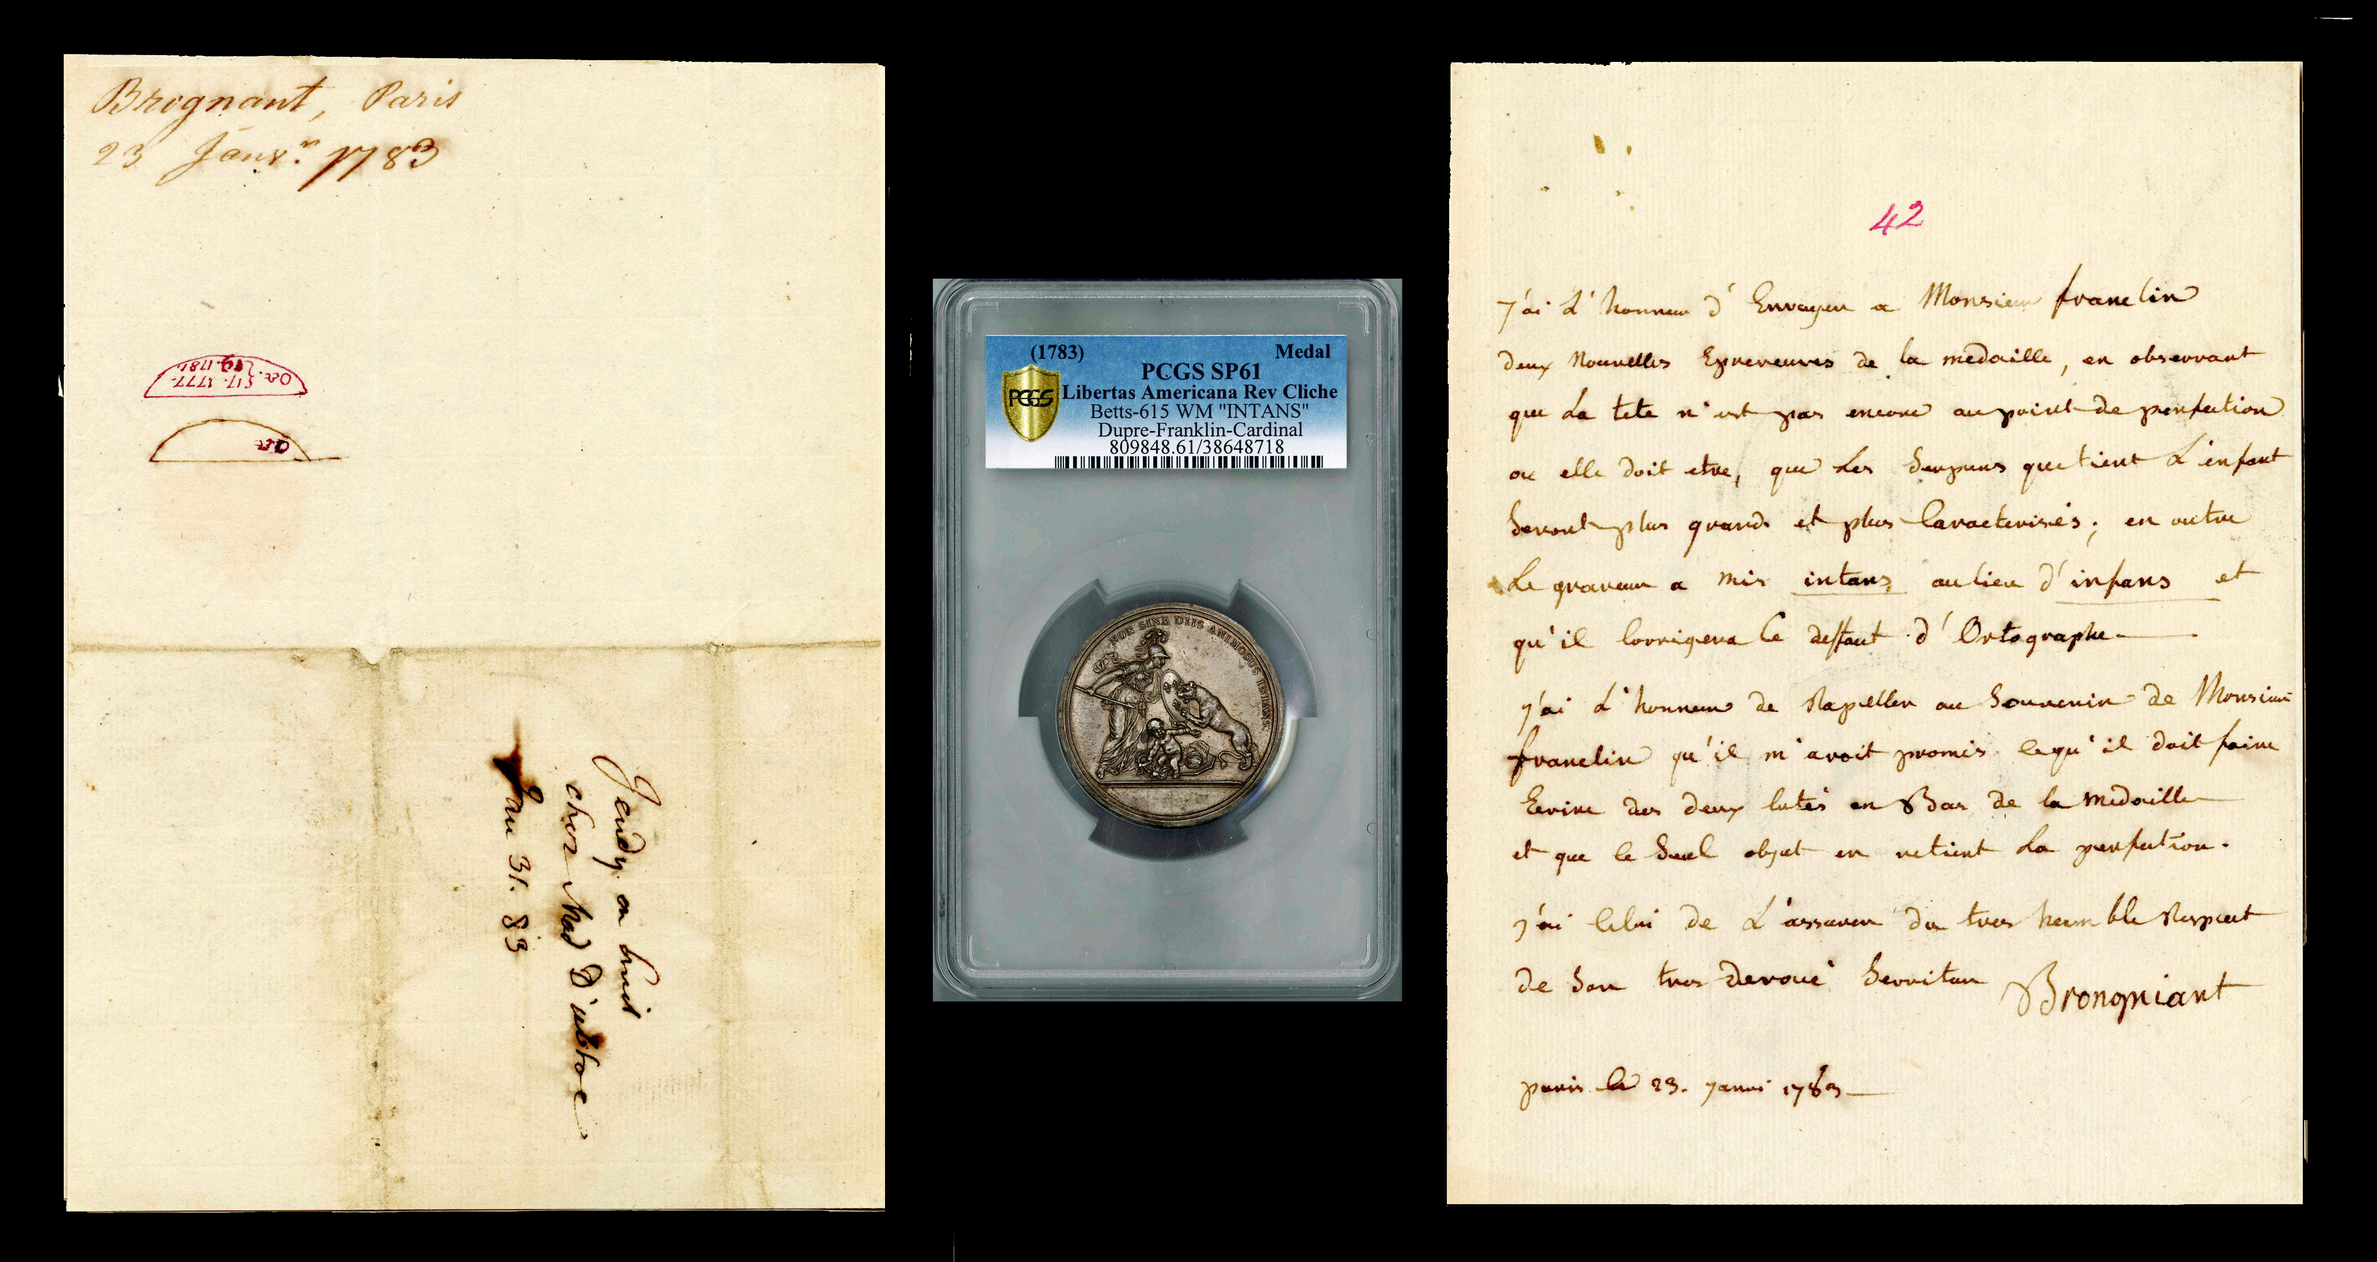 Brognant, Paris
23 Janvr. 1783
Oct. 17. 1777.
19. 1781.
Oct
Jeudy en huit
chez Mad D'
Jan 31. 83
(1783) Medal
PCGS SP61
PCGS
Libertas Americana Rev Cliche
Betts-615 WM "INTANS"
Dupre-Franklin-Cardinal
809848.61/38648718
NON SINE DIIS ANIMOSUS INTANS
42
j'ai L'honneur d'Envoyer a Monsieur franclin
deux Nouvelles Epreveuves de la medaille, en observant
que La tete n'est pas encore au point de perfection
ou elle doit etre, que Les Serpens que tient L'enfant
Seront plus grands et plus Caracterisés; en outre
Le graveur a mis intans au lieu d'infans et
qu'il Corrigera Ce deffaut d'Ortographe
j'ai L'honneur de Rapeller au Souvenir de Monsieur
franclin qu'il m'avoit promis ce qu'il doit faire
Ecrire des deux Cotés en Bas de la medaille
et que ce Seul objet en retient La perfection.
j'ai Celui de L'assurer du tres humble Respect
de Son tres devoué Serviteur Brongniart
paris le 23. janvi 1783